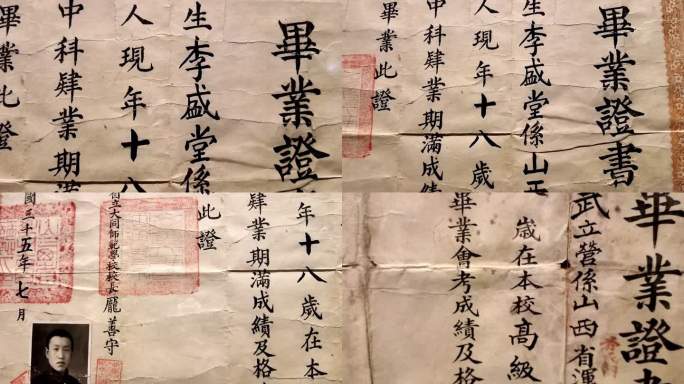 畢業證
生李盛堂係
人現年十八
中科肄業期滿
畢業此證
畢業證書
生李盛堂係山
人現年十八歲
中科肄業期滿成績
畢業此證
年十八歲在本
肄業期滿成績及格
此證
立大同師範學校校長龐善守
國三十五年七月
畢業證
武立營係山西省運
歲在本校高級
畢業會考成績及格